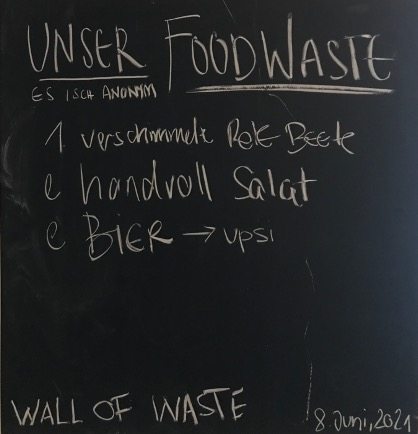 UNSER FOODWASTE
ES ISCH ANONYM
1 verschimmelt Rote Beete
e handvoll Salat
e BIER → upsi
WALL OF WASTE
8 Juni, 2021